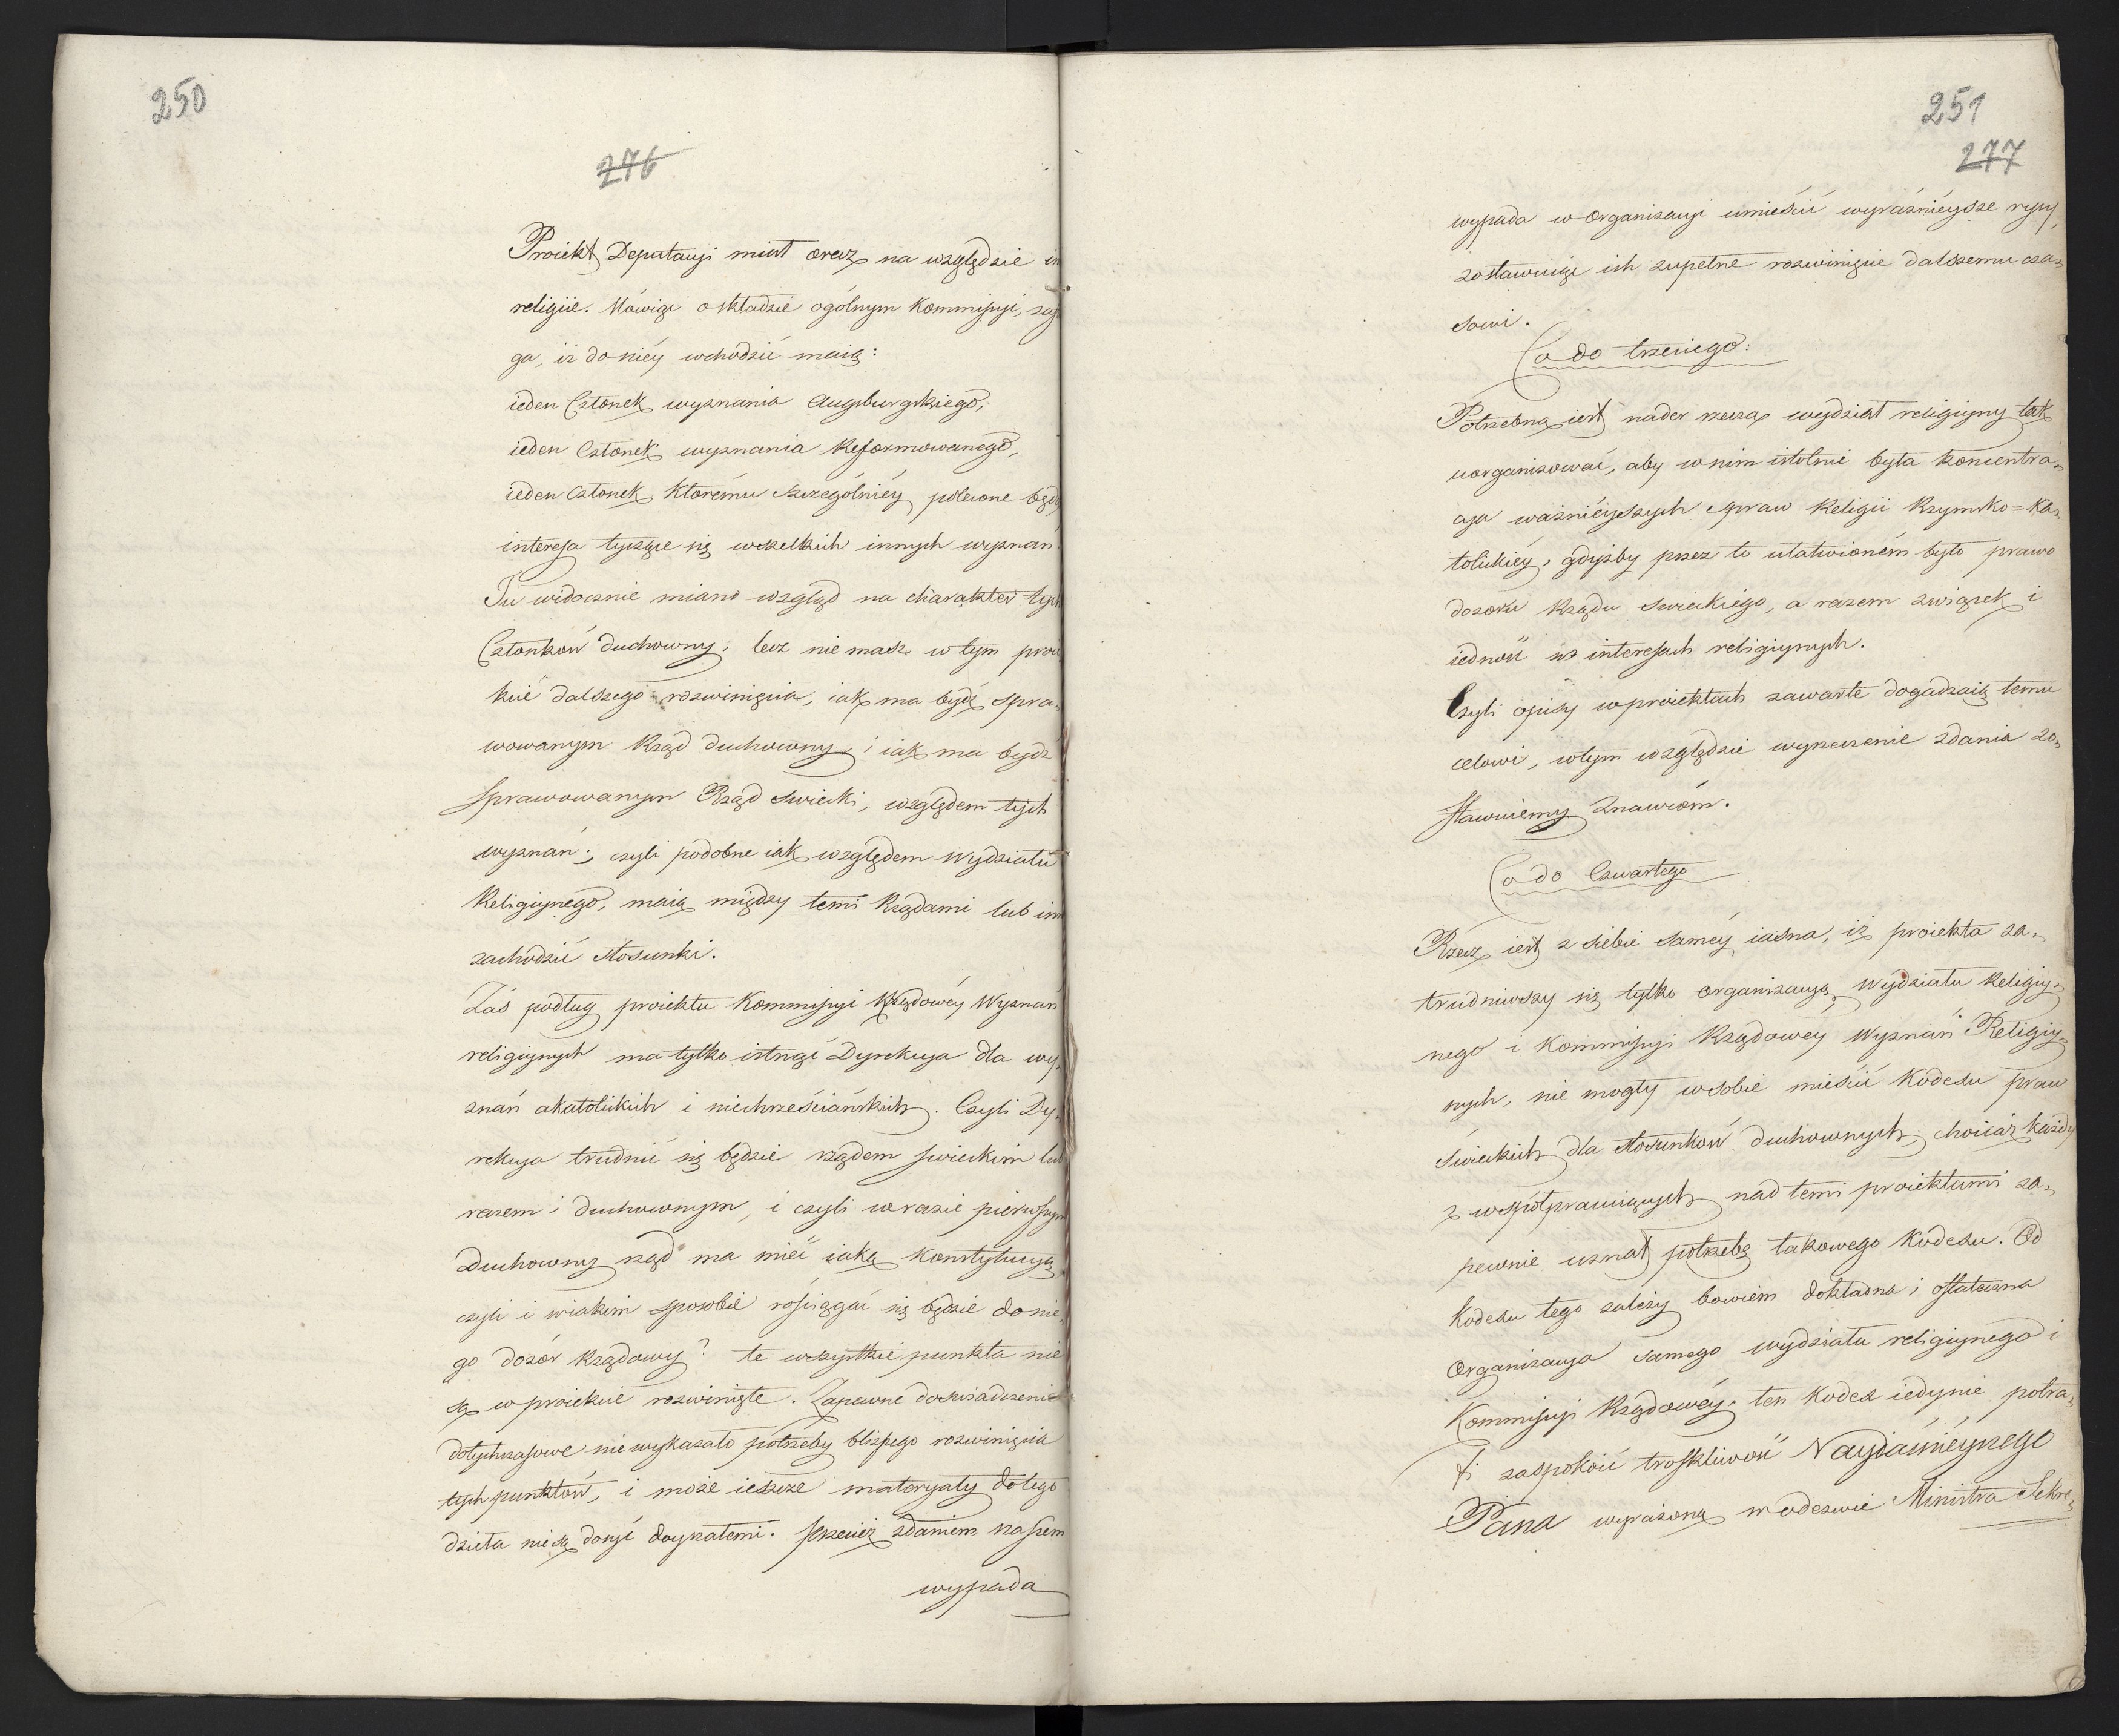 250
276
Proiekt Deputacyi miał oraz na względzie in
religiie. Mówiąc o składzie ogólnym Kommissyi, zaj
ga, iż do niéy wchodzić maią:
ieden Członek wyznania Augsburgskiego,
ieden Członek wyznania Reformowanego,
ieden Członek którému szczególniéy polecone będą
interesa tyczące się wszelkich innych wyznań
Tu widocznie miano wzgląd na charakter tych
Członków duchowny; lecz nie masz w tym proie
kcie dalszego rozwinięcia, iak ma bydź spra-
wowanym Rząd duchowny, i iak ma bydź
sprawowanym Rząd swiecki, względem tych
wyznań; czyli podobne iak względem Wydziału
Religiynego, maią między temi Rządami lub in
zachodzić stosunki.
Zaś podług proiektu Kommissyi Rządowéy Wyznań
religiynych ma tylko istnąć Dyrekcya dla wy-
znań akatolickich i niechrześciańskich. Czyli Dy-
rekcya trudnić się będzie rządem swieckim lub
razem i duchownym, i czyli w razie pierwszym
Duchowny rząd ma mieć iaką Konstytucyą
czyli i wiakim sposobie rościągać się będzie do nie-
go dozór Rządowy? te wszystkie punkta nie
są w proiekcie rozwinięte. Zapewne doswiadczenie
dotychczasowe niewykazało potrzeby bliższego rozwinięcia
tych punktów, i może ieszcze materyały do tego
dzieła nie są dosyć doyrzałemi. Przecież zdaniem naszem
wypada
251
277
wypada w Organizacyi umieścić wyraźniéysze rysy,
zostawuiąc ich zupełne rozwinięcie dalszemu cza-
sowi.
Co do trzeciego:
Potrzebną iest nader rzeczą wydział religiyny tak
uorganizować, aby w nim istotnie była koncentra-
cya ważniéyszych spraw Religii Rzymsko=Ka-
tolickiéy, gdyżby przez to ułatwioném było prawo
dozoru Rządu swieckiego, a razem związek i
iedność w interesach religiynych.
Czyli opisy w proiektach zawarte dogadzaią temu
celowi, w tym względzie wyrzeczenie zdania zo-
stawuiemy Znawcóm.
Co do Czwartego
Rzecz iest z siebie saméy iasna, iż proiekta za-
trudniwszy się tylko Organizacyą Wydziału Religiy-
nego i Kommissyi Rządowey Wyznań Religiy-
nych, nie mogły w sobie mieścić Kodexu praw
świeckich dla stosunków duchownych, chociaż każdy
z współpracuiących nad temi proiektami za-
pewnie uznał potrzebę takowego Kodexu. Od
Kodexu tego zależy bowiem dokładna i ostateczna
Organizacya samego wydziału religiynego i
Kommissyi Rządowéy. ten Kodex iedynie potra-
fi zaspokoić troskliwość Nayiaśniéyszego
Pana wyrażoną w odezwie Ministra Sekre-